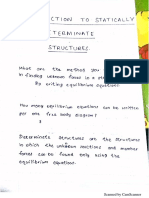 DUCTION TO STATICALLY
TERMINATE
STRUCTURES
What are the method you
in finded unknown forces in a
By writing equilibrium equation
How many equilibrium equations can be written
per one free body diagram?
3
Determinate structures are the structures
in which the unknown reactions and member
forces can be found only using the
equilibrium equation.
Scanned by CamScanner